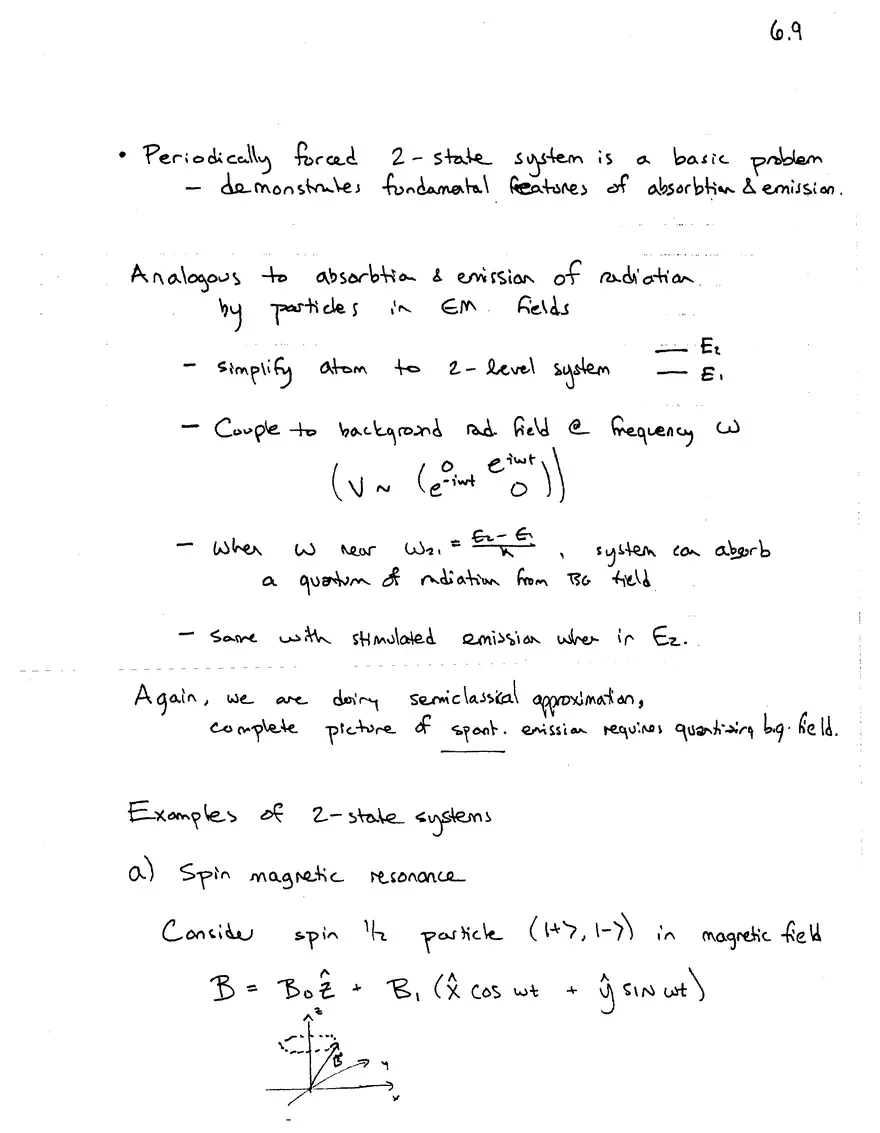 6.9
• Periodically forced 2-state system is a basic problem
– demonstrates fundamental features of absorbtion & emission.
Analogous to absorbtion & emission of radiation
by particles in EM fields
– simplify atom to 2-level system — E₂
— E₁
– Couple to background rad. field @ frequency ω
(V ~ (0 e^{iωt}
e^{-iωt} 0))
– When ω near ω₂₁ = (E₂ - E₁)/ħ, system can absorb
a quantum of radiation from BG field
– Same with stimulated emission when in E₂.
Again, we are doing semiclassical approximation,
complete picture of spont. emission requires quantizing b.g. field.
Examples of 2-state systems
a) Spin magnetic resonance
Consider spin 1/2 particle (|+>, |->) in magnetic field
B = B₀ẑ + B₁ (x̂ cos ωt + ŷ sin ωt)
z
B
y
x